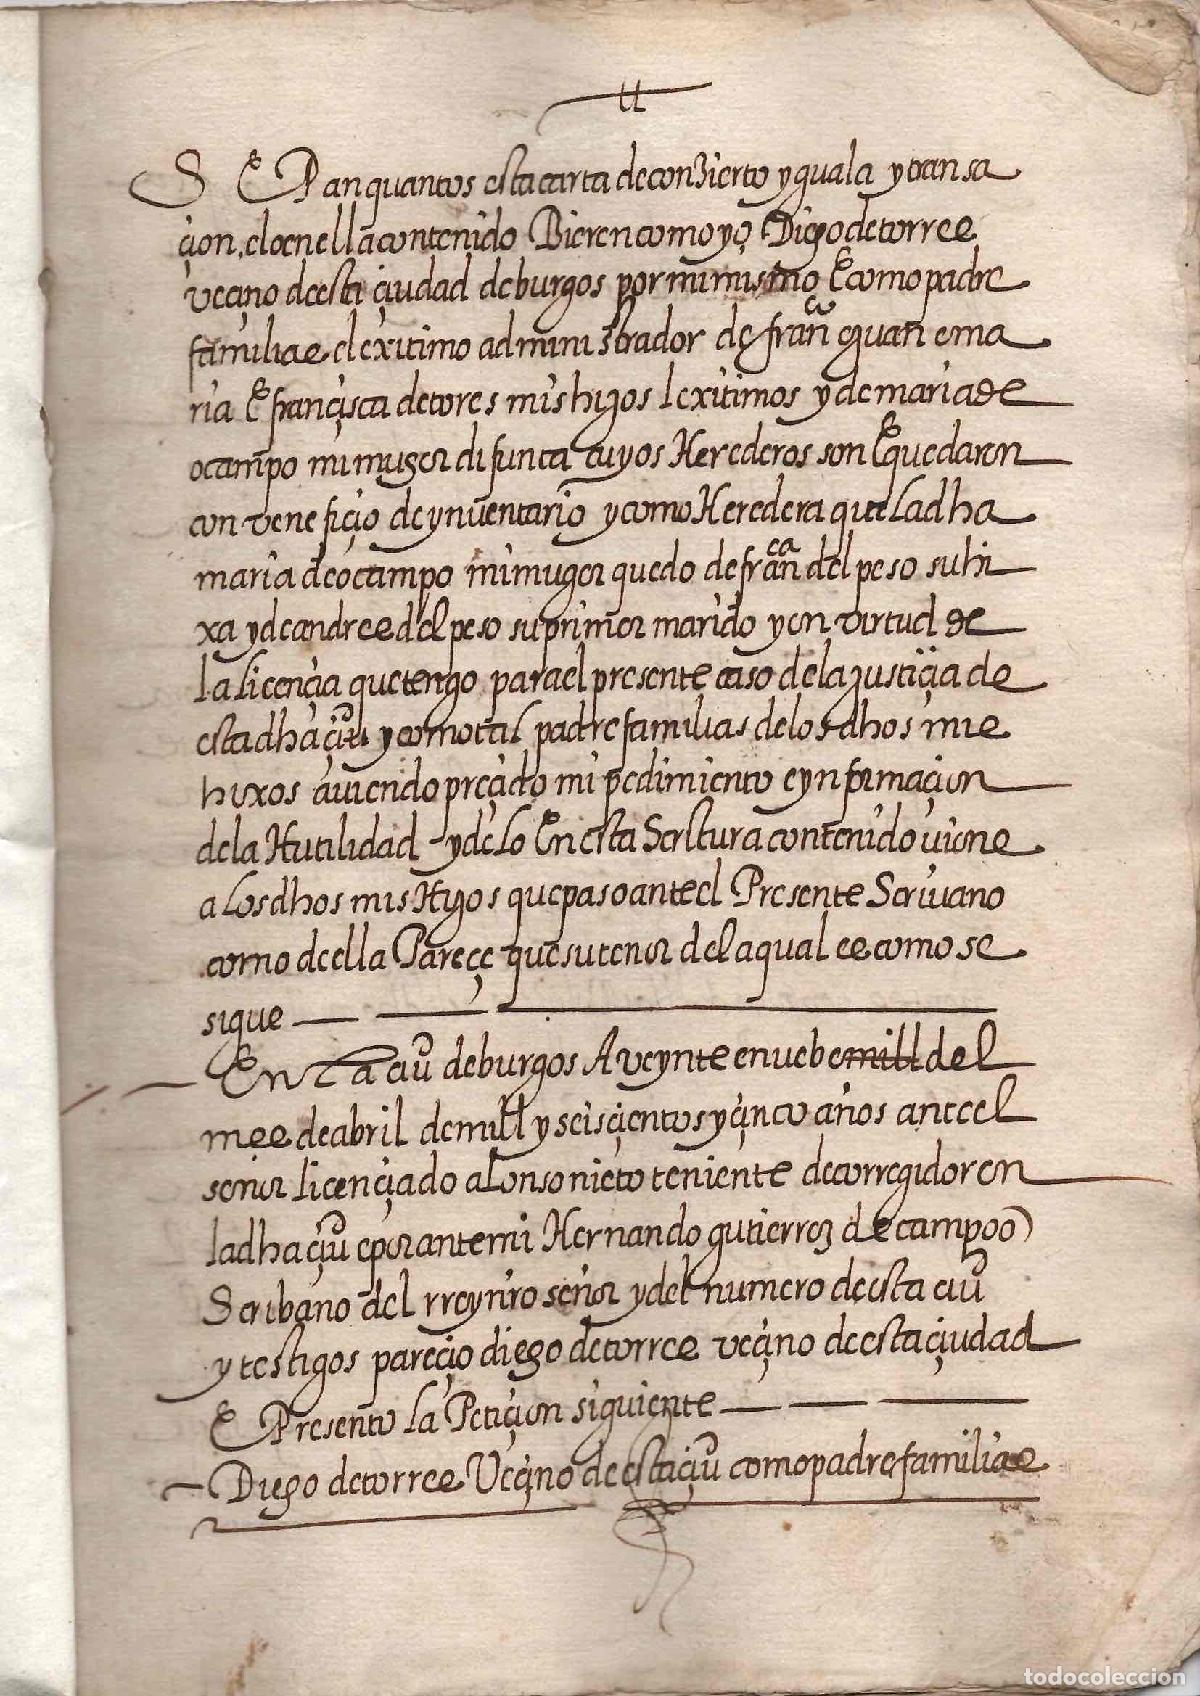 S E Pan quantos esta carta de conzierto yguala y transa
çion, e lo en ella contenido Bieren como yo Diego de torres
veçino de esta çiudad de burgos por mi mismo E como padre
familias e lexitimo administrador de fran^co Juan e ma
ria E françisca de torres mis hijos lexitimos y de maria de
ocampo mi muger difunta cuyos Herederos son E quedaron
con benefiçio de ynventario y como Heredera que la dha
maria de ocampo mi muger quedo de fran^ca del peso su hi
xa y de andres del peso su primer marido y en virtud de
la liçençia que tengo para el presente caso de la justiçia de
esta dha çiu y como tal padre familias de los dhos mis
hixos aviendo preçedido mi pedimiento e ynformaçion
de la Hutilidad y de lo En esta Scritura contenido viene
a los dhos mis Hijos que paso ante el Presente Scrivano
como de ella Pareçe que su tenor de la qual es como se
sigue
En la çiu de burgos A veynte e nuebe mill del
mes de abril de mill y seisçientos y çinco años ante el
senor liçençiado alonso nieto teniente de corregidor en
la dha çiu e por ante mi Hernando gutierrez de campoo
Scribano del rrey nro señor y del numero de esta çiu
y testigos pareçio diego de torres veçino de esta çiudad
E Presento la Petiçion siguiente
Diego de torres Veçino de esta çiu como padre familias
todocoleccion